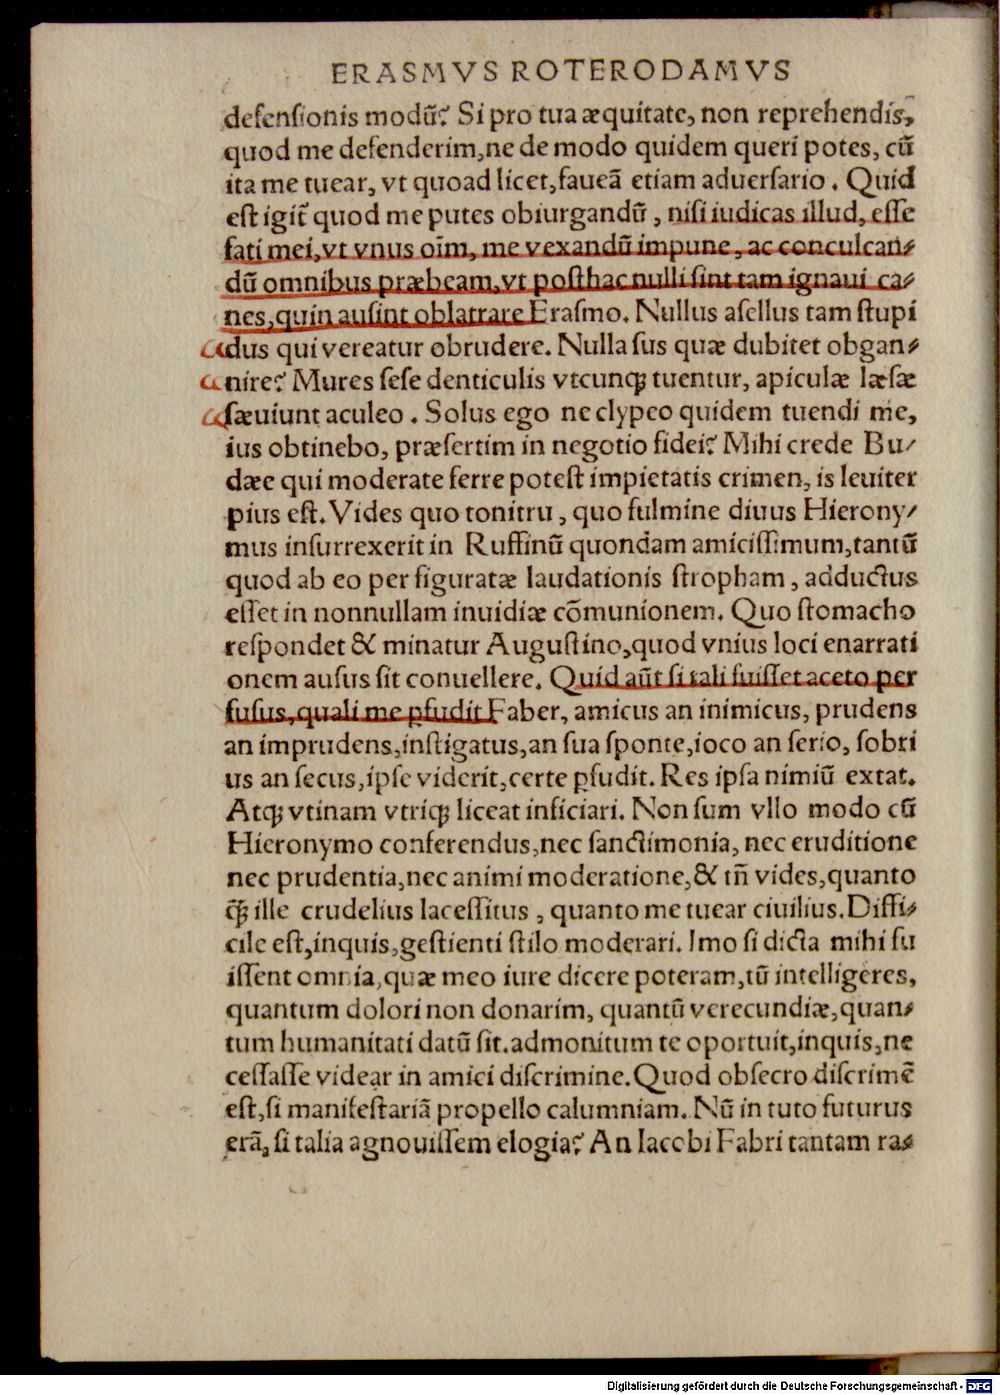 ERASMVS ROTERODAMVS
defenſionis modũ? Si pro tua æquitate, non reprehendis,
quod me defenderim,ne de modo quidem queri potes, cũ
ita me tuear, vt quoad licet,faueã etiam aduerſario . Quid
eſt igit̃ quod me putes obiurgandũ , niſi iudicas illud, eſſe
fati mei,vt vnus oīm, me vexandũ impune, ac conculcan-
dũ omnibus præbeam,vt poſthac nulli ſint tam ignaui ca-
nes,quin auſint oblatrare Eraſmo. Nullus aſellus tam ſtupi
dus qui vereatur obrudere. Nulla ſus quæ dubitet obgan-
nire? Mures ſeſe denticulis vtcunqꝫ tuentur, apiculæ læſæ
ſæuiunt aculeo . Solus ego ne clypeo quidem tuendi me,
ius obtinebo, præſertim in negotio fidei? Mihi crede Bu/
dæe qui moderate ferre poteſt impietatis crimen, is leuiter
pius eſt. Vides quo tonitru , quo fulmine diuus Hierony/
mus inſurrexerit in Ruffinũ quondam amiciſſimum,tantũ
quod ab eo per figuratæ laudationis ſtropham , adductus
eſſet in nonnullam inuidiæ cõmunionem. Quo ſtomacho
reſpondet & minatur Auguſtino,quod vnius loci enarrati
onem auſus ſit conuellere. Quid aũt ſi tali fuiſſet aceto per
fuſus,quali me ꝑfudit Faber, amicus an inimicus, prudens
an imprudens,inſtigatus,an ſua ſponte,ioco an ſerio, ſobri
us an ſecus,ipſe viderit,certe ꝑfudit. Res ipſa nimiũ extat.
Atqꝫ vtinam vtriqꝫ liceat inficiari. Non ſum vllo modo cũ
Hieronymo conferendus,nec ſanctimonia, nec eruditione
nec prudentia,nec animi moderatione,& tñ vides,quanto
q̃ꝫ ille crudelius laceſſitus , quanto me tuear ciuilius.Diffi-
cile eſt,inquis,geſtienti ſtilo moderari. Imo ſi dicta mihi fu
iſſent omnia,quæ meo iure dicere poteram,tũ intelligeres,
quantum dolori non donarim, quantũ verecundiæ,quan-
tum humanitati datũ ſit.admonitum te oportuit,inquis,ne
ceſſaſſe videar in amici diſcrimine.Quod obſecro diſcrimẽ
eſt,ſi manifeſtariã propello calumniam. Nũ in tuto futurus
erã, ſi talia agnouiſſem elogia? An Iacobi Fabri tantam ra-
Digitalisierung gefördert durch die Deutsche Forschungsgemeinschaft - DFG